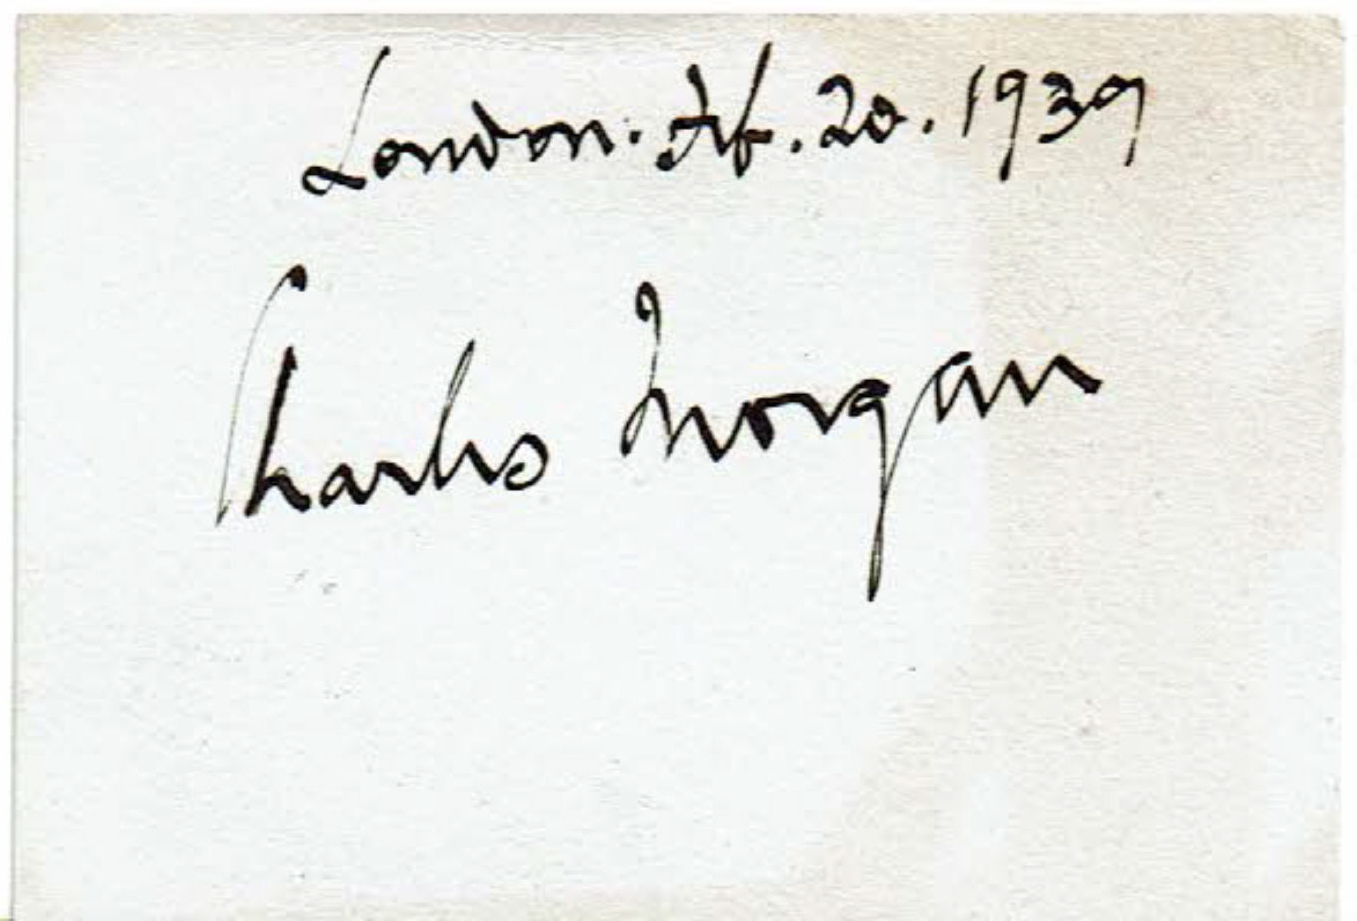 London. Feb. 20. 1939
Charles Morgan